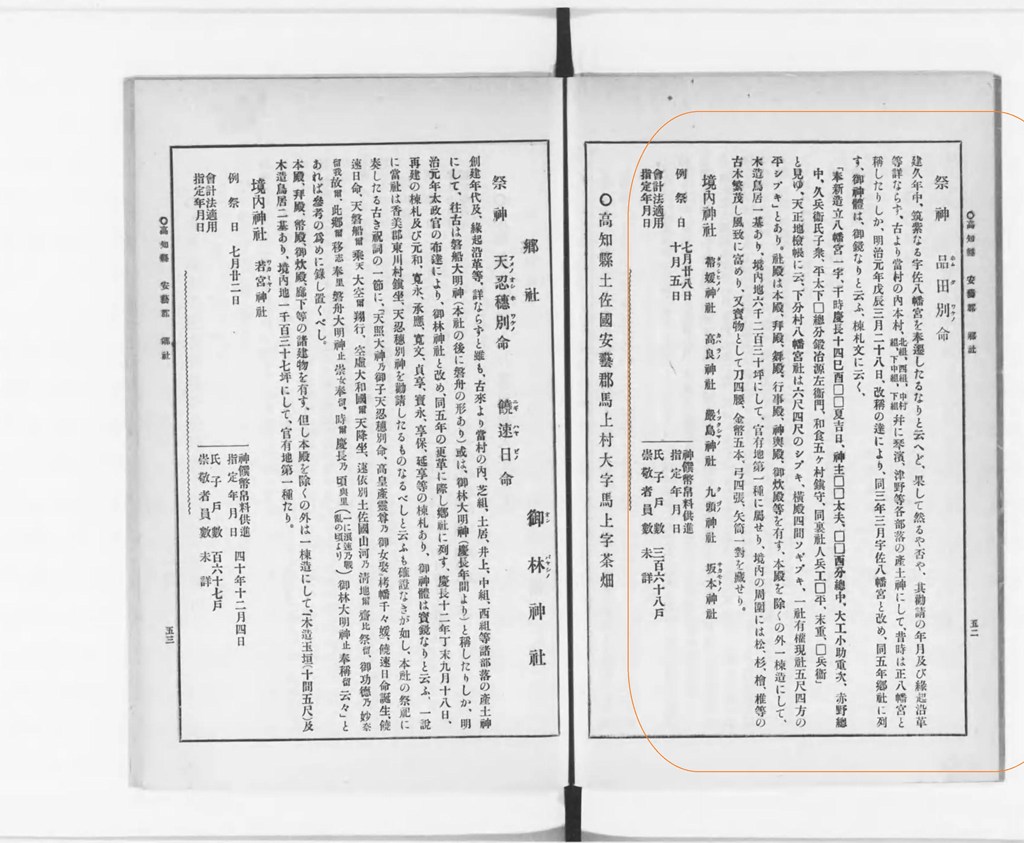 ○高知縣 安藝郡 鄕社
五二
祭神 品田別命
ホム ダ ワケノ
建久年中、筑紫なる宇佐八幡宮を奉遷したるなりと云へど、果して然るや否や、其勸請の年月及び緣起沿革
等詳ならす、古より當村の內本村、北組、西組、中村組、下中組、下組幷に琴濱、津野等各部落の產土神にして、昔時は正八幡宮と
稱したりしか、明治元年戊辰三月二十八日、改稱の達により、同三年三月宇佐八幡宮と改め、同五年鄕社に列
す、御神體は、御鏡なりと云ふ、棟札文に云く、
「奉新造立八幡宮一宇、干時慶長十四巳酉□□夏吉日、神主□□太夫、□□西分總中、大工小助重次、赤野總
中、久兵衞氏子衆、平太下□總分鍛冶源左衞門、和食五ヶ村鎭守、同裏社人兵工□平、末重、□兵衞」
と見ゆ、天正地檢帳に云、下分村八幡宮社は六尺四尺のシブキ、橫殿四間ソギブキ、一社有權現社五尺四方の
平シブキ」とあり。社殿は本殿、拜殿、舞殿、行事殿、神輿殿、御炊殿等を有す、本殿を除くの外一棟造にして、
木造鳥居一基あり、境內地六千二百三十坪にして、官有地第一種に屬せり、境內の周圍には松、杉、檜、椎等の
古木繁茂し風致に富めり、又寶物として刀四腰、金幣五本、弓四張、矢筒一對を藏せり。
境內神社 籌媛神社 高良神社 嚴島神社 九頭神社 坂本神社
カハラノ イツクシマノ クヅノ サカモトノ
例祭日 七月廿八日 十月五日
會計法適用指定年月日
神饌幣帛料供進指定年月日
氏子戶數 三百六十八戶
崇敬者員數 未詳
○高知縣土佐國安藝郡馬上村大字馬上字茶畑
鄕社 御林神社
オン バヤシノ
祭神 天忍穗別命 饒速日命
アメノ オシ ホ ワケノ ニギ ハヤ ビノ
創建年代及、緣起沿革等、詳ならすと雖も、古來より當村の內、芝組、土居、井上、中組、西祖等諸部落の產土神
にして、往古は磐船大明神(本社の後に磐舟の形あり)或は、御林大明神(慶長年間より)と稱したりしか、明
治元年太政官の布達により、御林神社と改め、同五年の更革に際し鄕社に列す、慶長十二年丁未九月十八日、
再建の棟札及び元和、寬永、承應、寬文、貞享、寶永、享保、延享等の棟札あり、御神體は寶鏡なりと云ふ、一說
に當社は香美郡東川村鎭坐、天忍穗別神を勸請したるものなるべしと云ふも確證なきが如し、本社の祭祀に
奏したる古き祝詞の一節に、「天照大神乃御子天忍穗別命、高皇產靈尊乃御女娶栲幡千々媛、饒速日命誕生、饒
速日命、天磐船爾乘天大空爾翔行、空虛大和國爾天降坐、遠依別土佐國山河乃淸地爾齋比祭留、御功德乃妙奈
留我故爾、此鄕爾移志奉里、磐舟大明神止崇女奉留、時爾慶長乃頃與里(一に須速乃戰亂の頃より)御林大明神止奉稱留云々」と
あれば參考の爲めに錄し置くべし。
本殿、拜殿、幣殿、御炊殿、廊下等の諸建物を有す、但し本殿を除くの外は一棟造にして、木造玉垣(十間五尺)及
木造鳥居二基あり、境內地一千百三十七坪にして、官有地第一種たり。
境內神社 若宮神社
ワカミヤノ
例祭日 七月廿二日
會計法適用指定年月日
神饌幣帛料供進指定年月日 四十年十二月四日
氏子戶數 百六十七戶
崇敬者員數 未詳
○高知縣 安藝郡 鄕社
五三